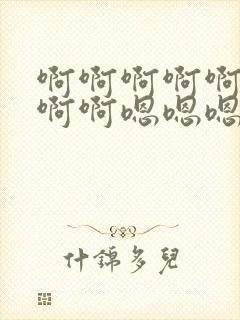 啊啊啊啊啊
啊啊嗯嗯嗯
什錦多兒